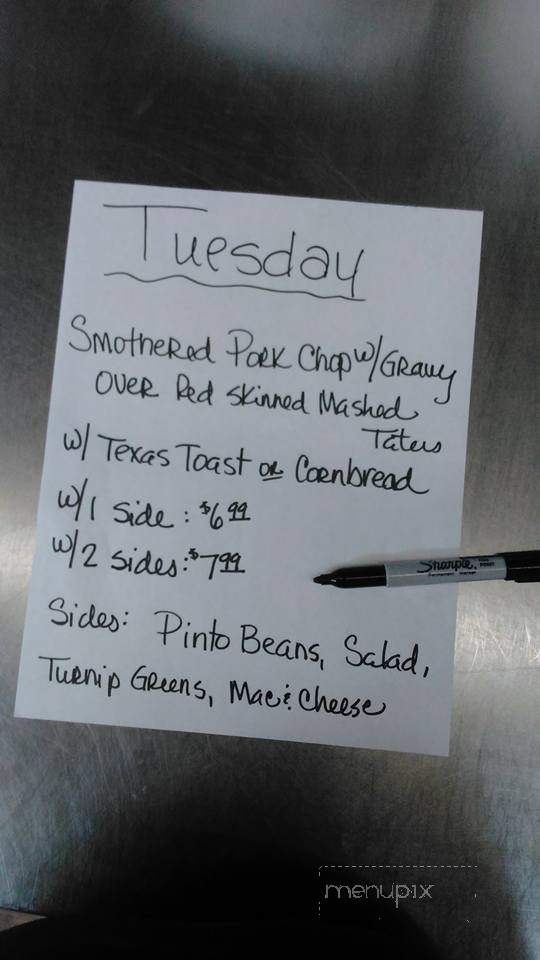 Tuesday
Smothered Pork Chop w/ Gravy
over Red Skinned Mashed
Taters
w/ Texas Toast or Cornbread
w/1 side: $6.99
w/2 sides: $7.99
Sharpie
Sides: Pinto Beans, Salad,
Turnip Greens, Mac & Cheese
menupix